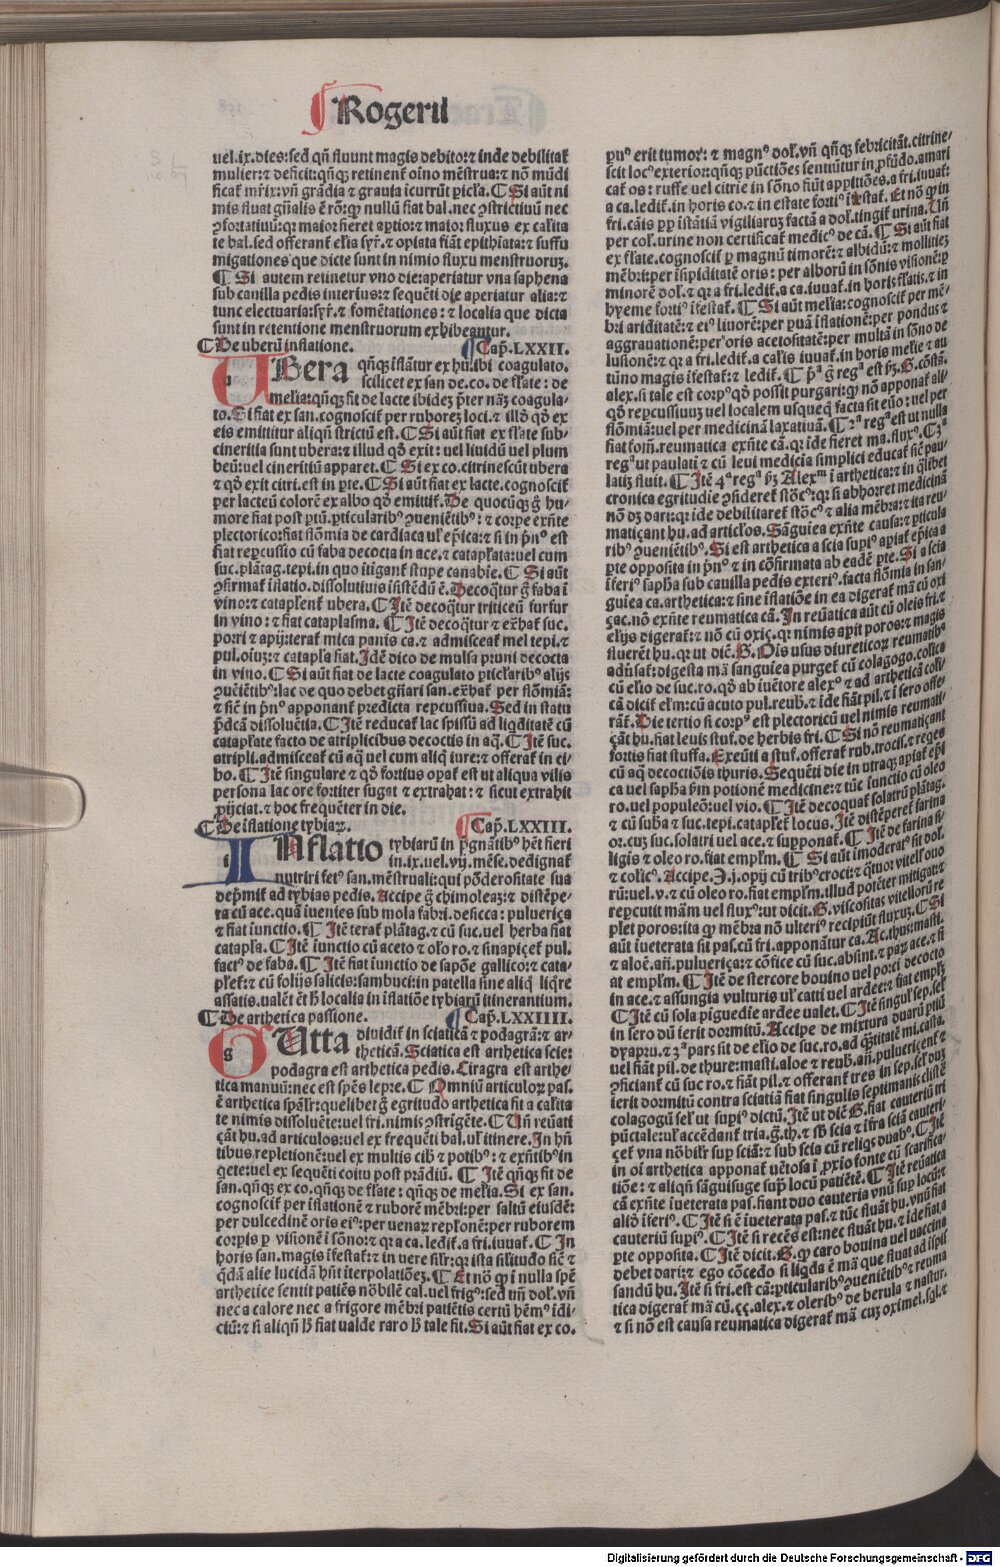 Rogerii
uel.ix.dies:sed qñ fluunt magis debito:⁊ inde debilitat̃
mulier:⁊ deficit:qñqꝫ retinent̃ oĩno mẽstrua:⁊ nõ mũdi
ficat̃ mr̃ix:vñ grãdia ⁊ grauia icurrũt picľa. ¶ Si aũt ni
mis fluat gñalis ẽ rõ:qꝛ nullũ fiat bal.nec ꝯstrictiuũ nec
ꝯfortatiuũ:qꝛ maior fieret aptio:⁊ maior fluxus ex caľita
te bal.sed offerant̃ eľia syr̃.⁊ opiata fiãt epithiata:⁊ suffu
migationes que dicte sunt in nimio fluxu menstruoruꝫ.
¶ Si autem retinetur vno die:aperiatur vna saphena
sub cauilla pedis interius:⁊ sequẽti die aperiatur alia:⁊
tunc electuaria:syr̃.⁊ fomẽtationes:⁊ localia que dicta
sunt in retentione menstruorum exhibeantur.
¶ De uberũ inflatione. ¶ Cap̃.LXXII.
UBera qñqꝫ iflãtur ex hu.ibi coagulato.
scilicet ex san de.co. de fľate : de
meľia:qñqꝫ fit de lacte ibideꝫ p̃ter naꝫ coagula-
to. Si fiat ex san.cognoscit̃ per ruboreꝫ loci.⁊ illď qď ex
eis emittitur aliqñ strictũ est. ¶ Si aũt fiat ex fľate sub-
cineritia sunt ubera:⁊ illud qď exit: uel liuidũ uel plum
beũ:uel cineritiũ apparet. ¶ Si ex co.citrinescũt ubera
⁊ qď exit citri.est in p̱te. ¶ Si aũt fiat ex lacte.cognoscit̃
per lacteũ colorẽ ex albo qď emittit̃. De quocũqꝫ g̃ hu-
more fiat post ptũ.p̱ticularibꝰ ꝯueniẽtibꝰ:⁊ corpe exñte
plectorico:fiat flõmia de cardiaca uľ ep̃ica:⁊ si in p̃nᵒ est
fiat rep̱cussio cũ faba decocta in ace.⁊ cataplata:uel cum
suc.plãtag.tepi.in quo itigant̃ stupe canabie. ¶ Si aũt
ꝯfirmat̃ iflatio.dissolutiuis isistẽdũ ẽ. Decoq̃tur g̃ faba i
vino:⁊ cataplent̃ ubera. ¶ Itẽ decoq̃tur triticeũ furfur
in vino:⁊ fiat cataplasma. ¶ Itẽ decoq̃tur ⁊ exhat̃ suc.
porri ⁊ apij:terat̃ mica panis ca.⁊ admisceat̃ mel tepi.⁊
pul.oiuꝫ:⁊ catapľa fiat. Idẽ dico de mulsa pruni decocta
in vino. ¶ Si aũt fiat de lacte coagulato pticľaribꝰ alijs
ꝯuẽiẽtibꝰ:lac de quo debet gñari san.exhat̃ per flõmiã:
⁊ sic̃ in p̃nᵒ apponant̃ predicta repcussiua. Sed in statu
p̃dcã dissoluẽtia. ¶ Itẽ reducat̃ lac spissũ ad liqditatẽ cũ
cataplate facto de atriplicibus decoctis in aq̃. ¶ Itẽ suc.
atripli.admisceat̃ cũ aq̃ uel cum aliq̃ iure:⁊ offerat̃ in ci-
bo. ¶ Itẽ singulare ⁊ qď fortius opat̃ est ut aliqua vilis
persona lac ore fortiter sugat ⁊ extrahat: ⁊ sicut extrahit
p̱ijciat.⁊ hoc frequẽter in die.
¶ De iflatione tybiaꝝ. ¶ Cap̃.LXXIII.
INflatio tybiarũ in p̃gnãtibꝰ hẽt fieri
in.ix.uel.vij.mẽse.dedignat̃
nutriri fetꝰ san.mẽstruali:qui põderositate sua
dep̃mit̃ ad tybias pedis. Accipe g̃ chimoleaꝫ:⁊ distẽpe-
ra cũ ace.quã iuenies sub mola fabri.desicca:pulueriça
⁊ fiat iunctio. ¶ Itẽ terat̃ plãtag.⁊ cũ suc.uel herba fiat
catapľa. ¶ Itẽ iunctio cũ aceto ⁊ oľo ro.⁊ sinapiçet̃ pul.
factꝰ de faba. ¶ Itẽ fiat iunctio de sapõe gallico:⁊ cata-
plet̃:⁊ cũ folijs salicis:sambuci:in patella sine aliq̃ liq̃re
assatis.ualẽt ẽt h̃ localia in iflatiõe tybiarũ itinerantium.
¶ De arthetica passione. ¶ Cap̃.LXXIIII.
GUtta diuidit̃ in sciaticã ⁊ podagrã:⁊ ar-
theticã. Sciatica est arthetica scie:
podagra est arthetica pedis. Ciragra est arthe-
tica manuũ:nec est sp̃es lepre. ¶ Omniũ articuloꝝ pas.
ẽ arthetica sp̃alr̃:quelibet g̃ egritudo arthetica fit a caľita
te nimis dissoluẽte:uel fri.nimis ꝯstrigẽte. ¶ Uñ reũati
çãt hu.ad articulos:uel ex frequẽti bal.uľ itinere. In hñ
tibus repletionẽ:uel ex multis cib̃ ⁊ potibꝰ:⁊ exñtibꝰ in
qete:uel ex sequẽti coitu post prãdiũ. ¶ Itẽ qñqꝫ fit de
san.qñqꝫ ex co.qñqꝫ de fľate: qñqꝫ de meľia. Si ex san.
cognoscit̃ per iflationẽ ⁊ ruborẽ mẽbri:per saltũ eiusdẽ:
per dulcedinẽ oris eiꝰ:per uenaꝝ repľonẽ:per ruborem
corpis p̱ visionẽ i sõno:⁊ qꝛ a ca.ledit̃.a fri.iuuat̃. ¶ In
horis san.magis ifestat̃:⁊ in vere silr̃:qꝛ ista silitudo sic̃ ⁊
q̃dã alie lucidã hñt iterpolatiõeꝫ. ¶ Et nõ qꝛ i nulla spẽ
arthetice sentit patiẽs nõbilẽ cal.uel frigꝰ:sed tm̃ dol.vñ
nec a calore nec a frigore mẽbri patiẽtis certũ hẽmꝰ idi-
ciũ:⁊ si aliqñ h̃ fiat ualde raro h̃ tale fit. Si aũt fiat ex co.
puꝰ erit tumor: ⁊ magnꝰ dol.vñ qñqꝫ febricitãt.citrine-
scit locꝰ exterior:qñqꝫ pũctiões sentiũtur in p̱fũdo.amari
cat̃ os: ruffe uel citrie in sõno fiũt appitiões.a fri.iuuat̃:
a ca.ledit̃.in horis co.⁊ in estate fortiꝰ ifestat̃. Et nõ qꝛ in
fri.cãis p̱p istãtiã vigiliaruꝫ factã a dol.tingit̃ urina. Uñ
per col.urine non certificat̃ medicꝰ de cã. ¶ Si aũt fiat
ex fľate.cognoscit̃ p̱ magnũ timorẽ:⁊ albidũ:⁊ mollitieꝫ
mẽbri:per isipiditatẽ oris : per alborũ in sõnis visionẽ:p̱
minorẽ dol.⁊ qꝛ a fri.ledit̃.a ca.iuuat̃.in horis fľatis.⁊ in
hyeme fortiꝰ ifestat̃. ¶ Si aũt meľia:cognoscit̃ per mẽ-
bri ariditatẽ:⁊ eiꝰ liuorẽ:per puã iflationẽ:per pondus ⁊
aggrauationẽ:per oris acetositatẽ:per multã in sõno de
lusionẽ:⁊ qꝛ a fri.ledit̃.a calis iuuat̃.in horis melie ⁊ au
tũno magis ifestat̃:⁊ ledit̃. ¶ p̃ᵃ g̃ regᵃ est p̃ꝫ. G. cõstã.
alex.si tale est corpꝰ qď possit purgari:qꝛ nõ apponat̃ ali-
qď repcussiuuꝫ uel localem usquequo facta sit euo: uel per
flõmiã:uel per medicinã laxatiuã. ¶ 2ᵃ regᵃ est ut nulla
fiat fom̃.reumatica exñte cã.qꝛ ide fieret ma.fluxꝰ. ¶ 3ᵃ
regᵃ ut paulati ⁊ cũ leui medicia simplici educat̃ sic̃ pau-
latiꝫ fluit. ¶ Itẽ 4ᵃ regᵃ p̃ꝫ Alexᵐ i arthetica:⁊ in q̃libet
cronica egritudie ꝯsideret̃ stõcꝰ:qꝛ si abhorret medicinã
nõ dꝫ dari:qꝛ ide debilitaret̃ stõcꝰ ⁊ alia mẽbra:⁊ ita reu-
matiçant hu.ad articľos. Sãguiea exñte causa:⁊ p̱ticula
ribꝰ ꝯueniẽtibꝰ. Si est arthetica a scia supiꝰ apiat̃ ep̃ica a
p̱te opposita in p̃nᵒ ⁊ in cõfirmata ab eadẽ p̱te. Si a scia
iferiꝰ sapha sub cauilla pedis exteriꝰ.facta flõmia in san-
guiea ca.arthetica:⁊ sine iflatiõe in ea digerat̃ mã cũ oxi
çac.nõ exñte reumatica cã. In reũatica aũt cũ oleis fri.⁊
elijs digerat̃:⁊ nõ cũ oxiç.qꝛ nimis apit poros:⁊ magis
fluerẽt hu.qꝛ ut dicẽ. G. Ois usus diureticoꝝ reumatibꝰ
aduſat̃:digesta mã sanguiea purget̃ cũ colagogo.colica
cũ eľio de suc.ro.qď ab iuẽtore alexᵒ ⁊ ad artheticã coli
cã dicit̃ elm̃:cũ acuto pul.reub̃.⁊ ide fiãt pil.⁊ i sero offe-
rãt̃. Die tertio si corpꝰ est plectoricũ uel nimis reumati-
çãt hu.fiat leuis stuf.de herbis fri. ¶ Si nõ reumatiçant
fortis fiat stuffa. Exeũti a stuf.offerat̃ rub.trocis.⁊ reges
cũ aq̃ decoctiõis thuris. Sequẽti die in utraqꝫ apiat̃ ep̃i
ca uel sapha p̃m potionẽ medicine:⁊ tũc iunctio cũ oleo
ro.uel populeo:uel vio. ¶ Itẽ decoquat̃ solatrũ plãtag.
⁊ cũ suba ⁊ suc.tepi.cataplet̃ locus. Itẽ distẽperet̃ farina
or.cuꝫ suc.solatri uel ace.⁊ supponat̃. ¶ Itẽ de farina si-
liginis ⁊ oleo ro.fiat emplm̃. ¶ Si aũt imoderatꝰ sit dol.
⁊ colicꝰ. Accipe. ʒ.j.opij cũ tribꝰ croci:⁊ q̃tuor vitelľ ouo
rũ:uel.v.⁊ cũ oleo ro.fiat emplm̃.illud potẽter mitigat:⁊
repcutit mãm uel fluxꝰ:ut dicit. G. viscositas vitelloꝝ re
plet poros:ita qꝛ mẽbra nõ ulteriꝰ recipiũt fluxuꝫ. ¶ Si
aũt iueterata sit pas.cũ fri.apponãtur ca. Ac.thus:masti.
⁊ aloẽ.añ.pulueriça:⁊ cõfice cũ suc.absint.⁊ paꝝ ace.⁊ fi
at emplm̃. ¶ Itẽ de stercore bouino uel porci decocto
in ace.⁊ assungia vulturis uľ catti uel ardee:⁊ fiat emplm̃
¶ Itẽ cũ sola piguedie ardee ualet. ¶ Itẽ singuľ sep.sel̃
in sero dũ ierit dormitũ. Accipe de mixtura duarũ ptiũ
dyapru.⁊ 3ᵃ pars sit de eľio de suc.ro.ad q̃titatẽ mi.casta.
uel fiãt pil.de thure:masti.aloe ⁊ reub̃.añ.pulueriçent̃ ⁊
ꝯficiant̃ cũ suc ro.⁊ fiãt pil.⁊ offerant̃ tres in sep.sel̃ duꝫ
ierit dormitũ contra sciatiã fiat singulis septimanis clistẽ
colagogũ seľ ut supiꝰ dictũ. Itẽ ut dicẽ G. fiat cauteriũ iri
pũctale:uľ accẽdant̃ tria.g̃.th.⁊ sb̃ scia ⁊ ifra sciã cauteri-
çet̃ vna nõbilr̃ sup̱ sciã:⁊ sub scia cũ reliqs duabꝰ. ¶ Itẽ
in oi arthetica apponat̃ uẽtosa i p̱xio fonte cũ scarifica-
tiõe: ⁊ aliqñ sãguisuge sup̃ locũ patiẽtẽ. ¶ Itẽ reũatica
cã exñte iueterata pas.fiant duo cauteria vnũ sup locũ:⁊
aliď iferiꝰ. ¶ Itẽ si ẽ iueterata pas.⁊ tũc fluãt hu.vnũ fiat
cauteriũ supiꝰ. ¶ Itẽ si recẽs est:nec fluãt hu.⁊ ide fiat a
p̱te opposita. ¶ Itẽ dicit. G. qꝛ caro bouina uel uaccina
debet dari:⁊ ego cõcedo si liqda ẽ mã que fluat ad ispis
sandũ hu. Itẽ si fri.est cã:p̱ticularibꝰ ꝯueniẽtibꝰ ⁊ reuma
tica digerat̃ mã cũ.çç.alex.⁊ oleribꝰ de berula ⁊ nastur.
⁊ si nõ est causa reumatica digerat̃ mã cuꝫ oximel.sql̃.⁊
Digitalisierung gefördert durch die Deutsche Forschungsgemeinschaft - DFG